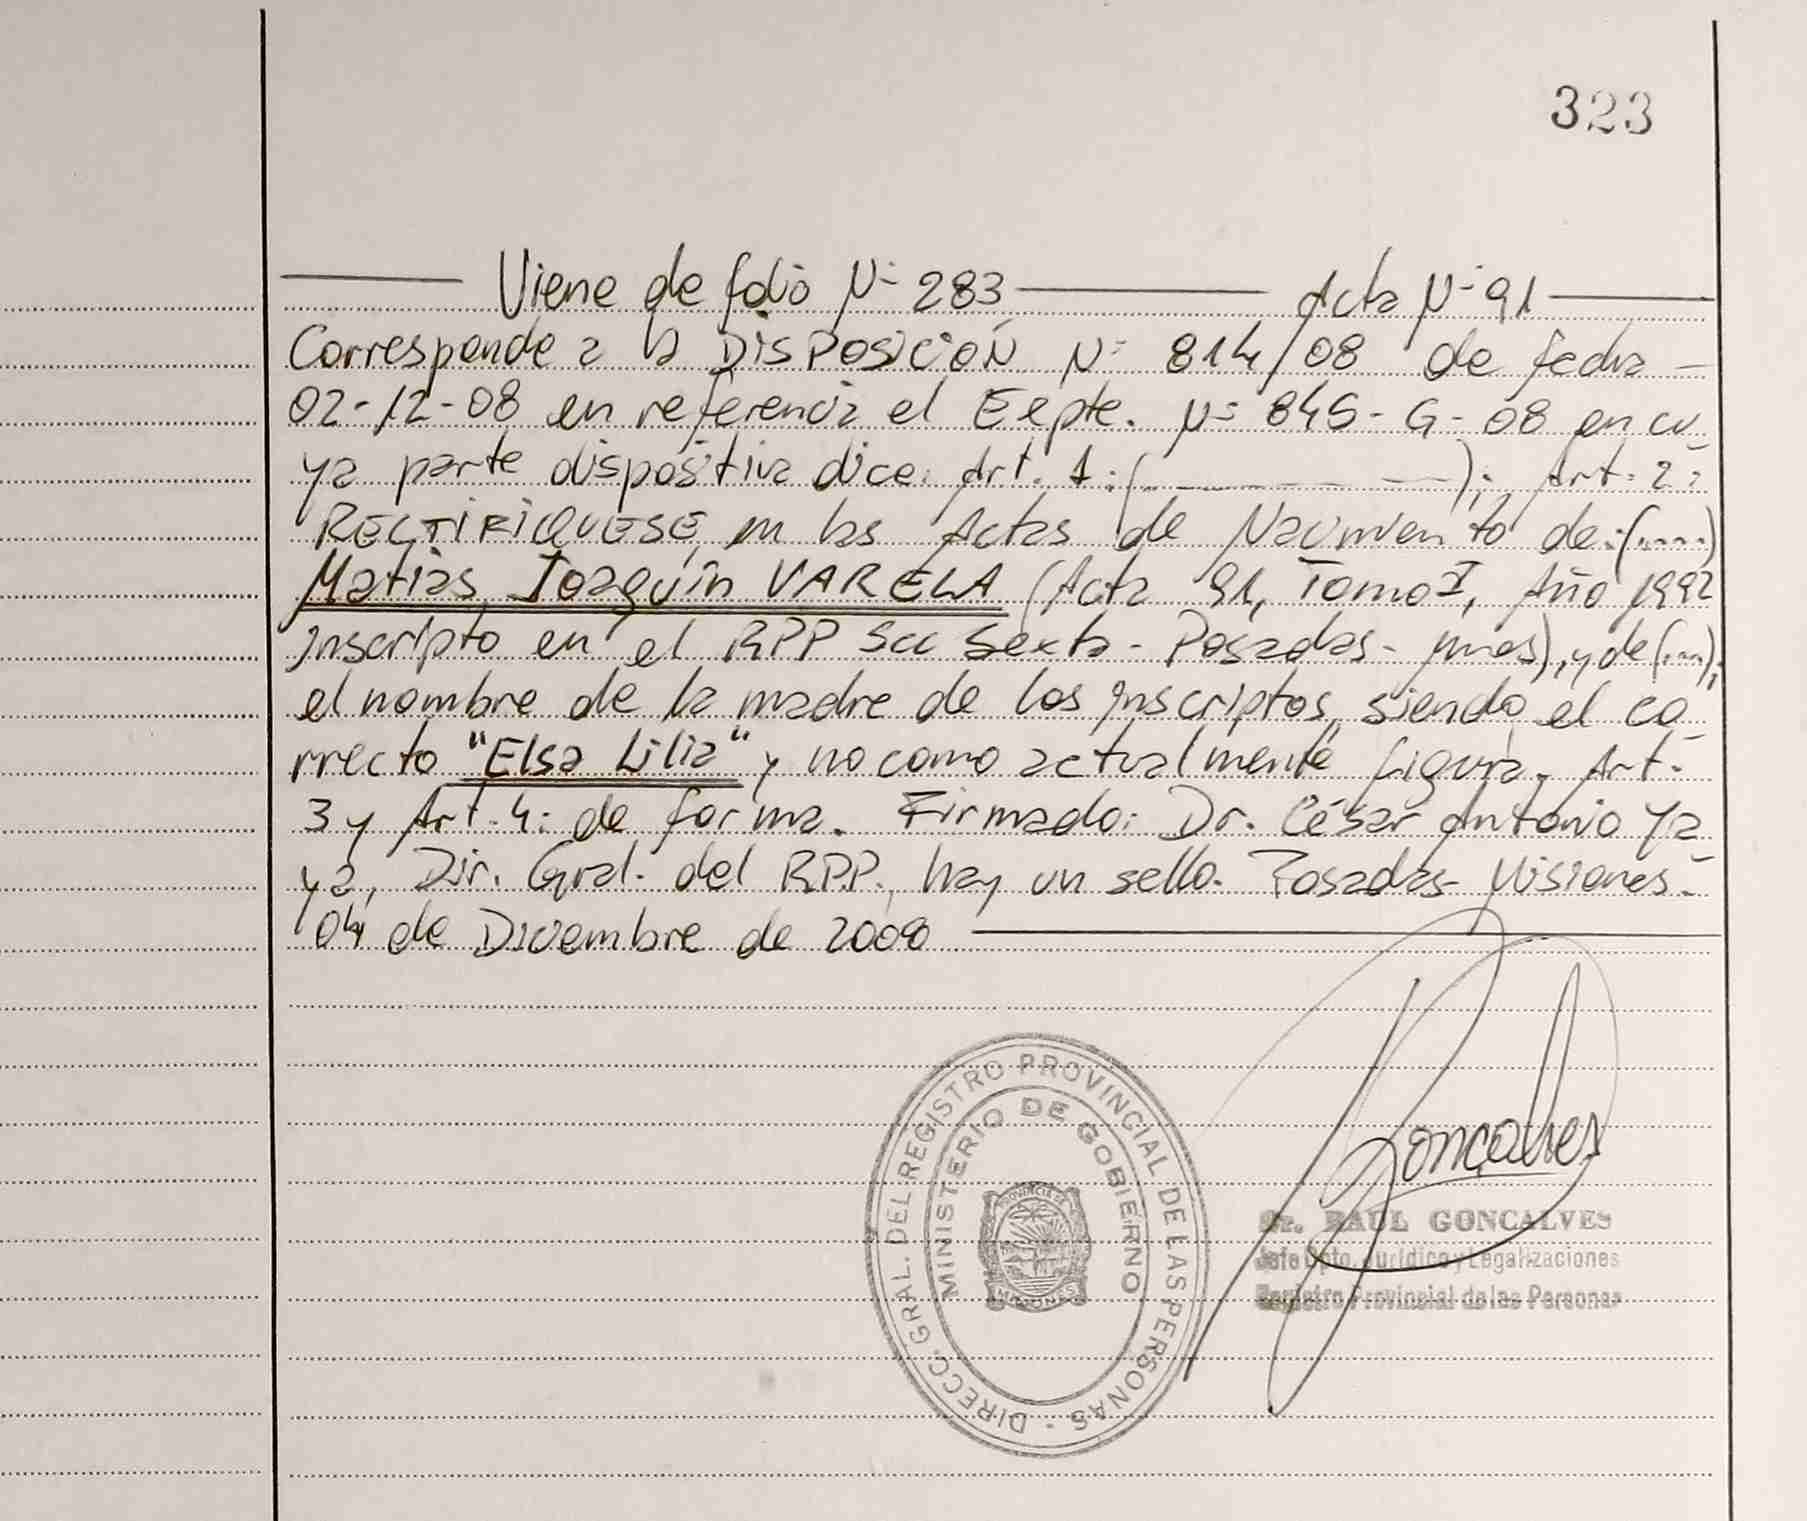 323
Viene de folio N- 283 Acta N- 91
Corresponde a la DISPOSICION N= 814/08 de fecha -
02-12-08 en referencia el Expte. N= 845-G-08 en cu-
ya parte dispositiva dice: Art. 1:(_ _ _ _); Art: 2:
RECTIFIQUESE en las Actas de Nacimiento de:(....)
Matias Joaquín VARELA (Acta 91, Tomo I, Año 1992
inscripto en el RPP Scc Sexta - Posadas - mnes), y de (....),
el nombre de la madre de los inscriptos, siendo el co-
rrecto "Elsa Lilia" y no como actualmente figura. Art.
3 y Art. 4: de forma. Firmado: Dr. César Antonio Ya
ya, Dir. Gral. del RPP., hay un sello. Posadas Misiones.-
04 de Diciembre de 2008
DIRECC. GRAL. DEL REGISTRO PROVINCIAL DE LAS PERSONAS -
MINISTERIO DE GOBIERNO
PROVINCIA DE
MISIONES
Goncalves
Sr. RAUL GONCALVES
Jefe Dpto. Jurídico y Legalizaciones
Registro Provincial de las Personas